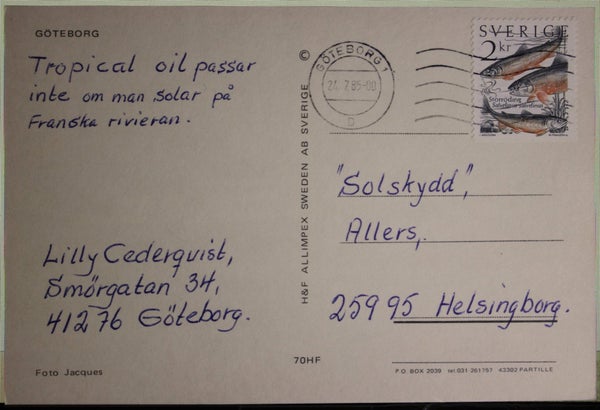 GÖTEBORG
Tropical oil passar
inte om man solar på
Franska rivieran.
Lilly Cederquist,
Smörgatan 34,
412 76 Göteborg.
Foto Jacques
© H&F ALLIMPEX SWEDEN AB SVERIGE
70HF
GÖTEBORG 1
7.85-00
D
SVERIGE
2 kr
Storröding
"Solskydd",
Allers,
259 95 Helsingborg.
P.O. BOX 2039 tel.031-261757 43302 PARTILLE